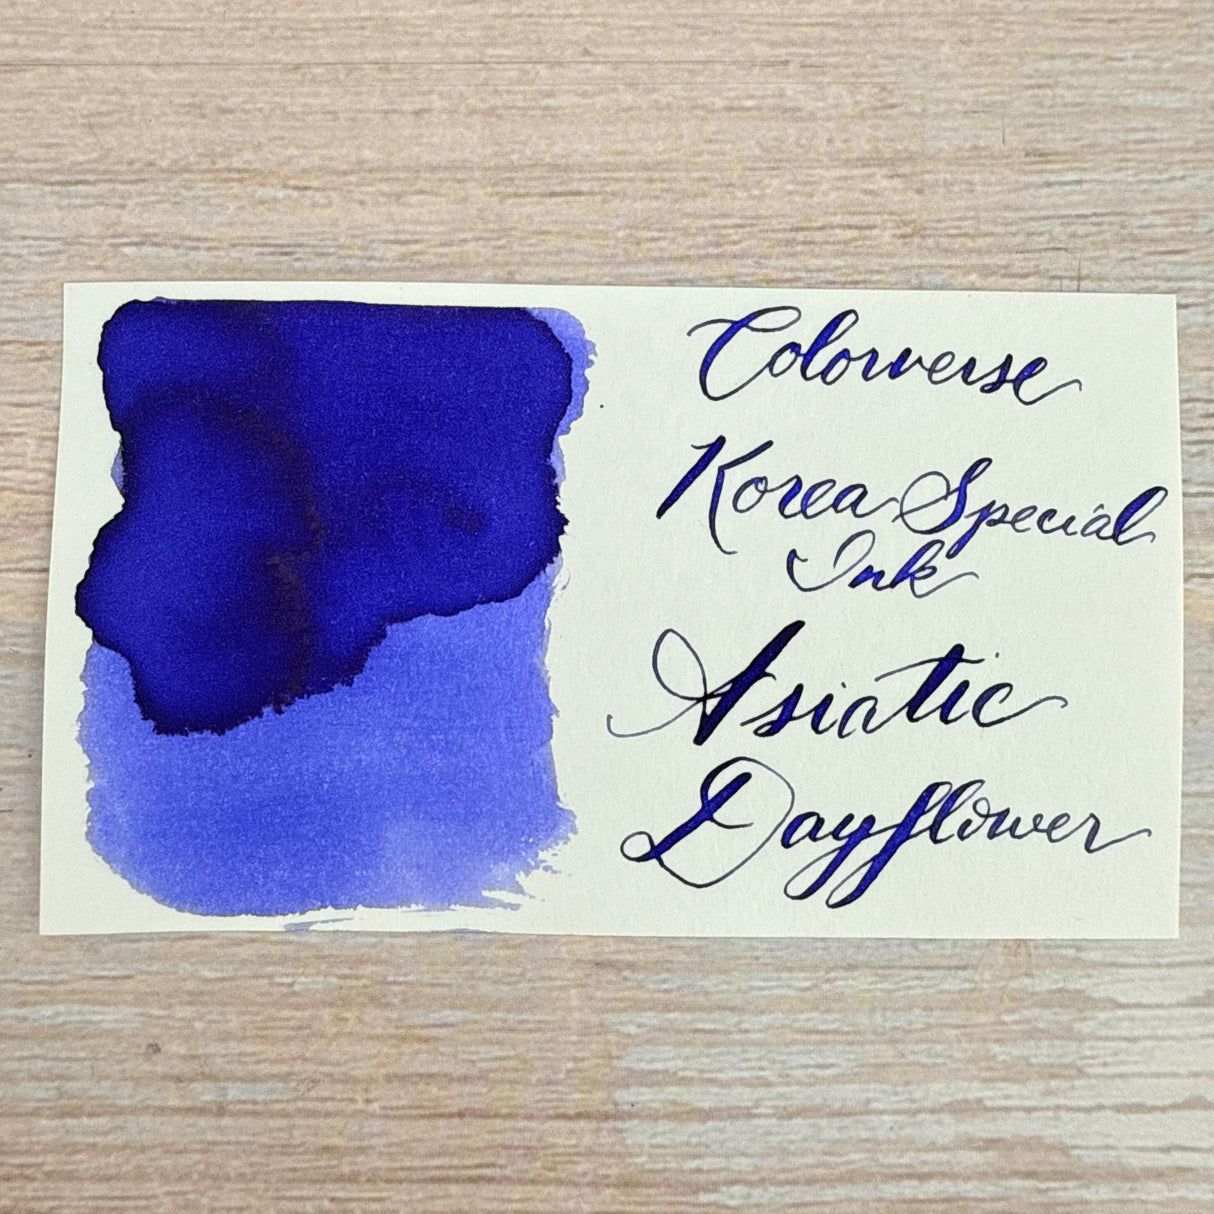 Colorverse
Korea Special
Ink
Asiatic
Dayflower